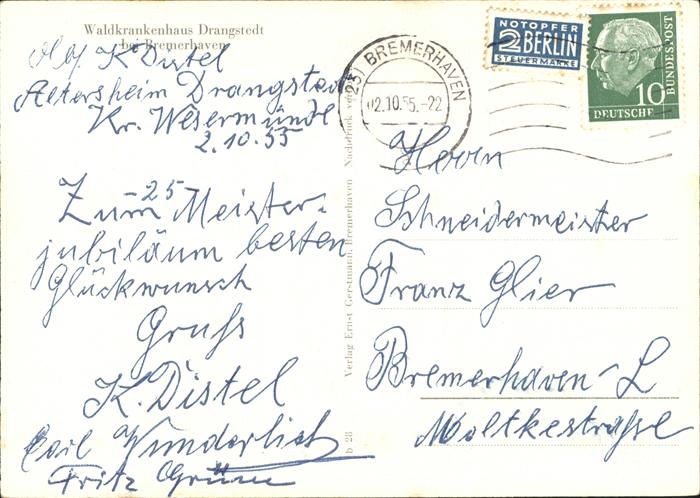 Waldkrankenhaus Drangstedt
bei Bremerhaven
K. Distel
Altersheim Drangstedt
Kr. Wesermünde
2.10.55
Zum -25 Meister-
jubiläum besten
Glückwunsch
Gruss
K. Distel
Carl Wunderlich
Fritz Grünn
Verlag Ernst Gerstmann, Bremerhaven Nachdruck
b 28
(23) BREMERHAVEN
02.10.55.-22
NOTOPFER
2 BERLIN
STEUERMARKE
BUNDESPOST
10
DEUTSCHE
Herrn
Schneidermeister
Franz Glier
Bremerhaven-L
Moltkestraße